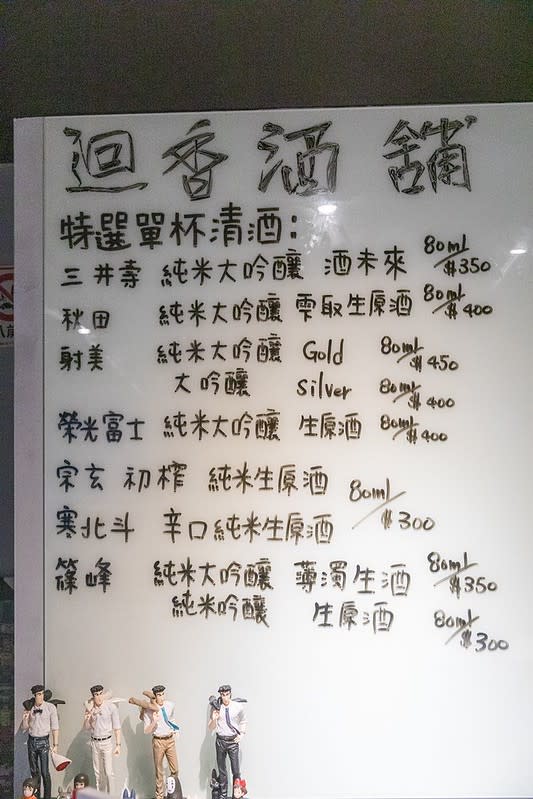 迴香酒舖
特選單杯清酒:
三井壽 純米大吟釀 酒未來 80ml/$350
秋田 純米大吟釀 雫取生原酒 80ml/$400
射美 純米大吟釀 Gold 80ml/$450
大吟釀 Silver 80ml/$400
榮光富士 純米大吟釀 生原酒 80ml/$400
宗玄 初榨 純米生原酒 80ml/$300
寒北斗 辛口純米生原酒
篠峰 純米大吟釀 薄濁生酒 80ml/$350
純米吟釀 生原酒 80ml/$300